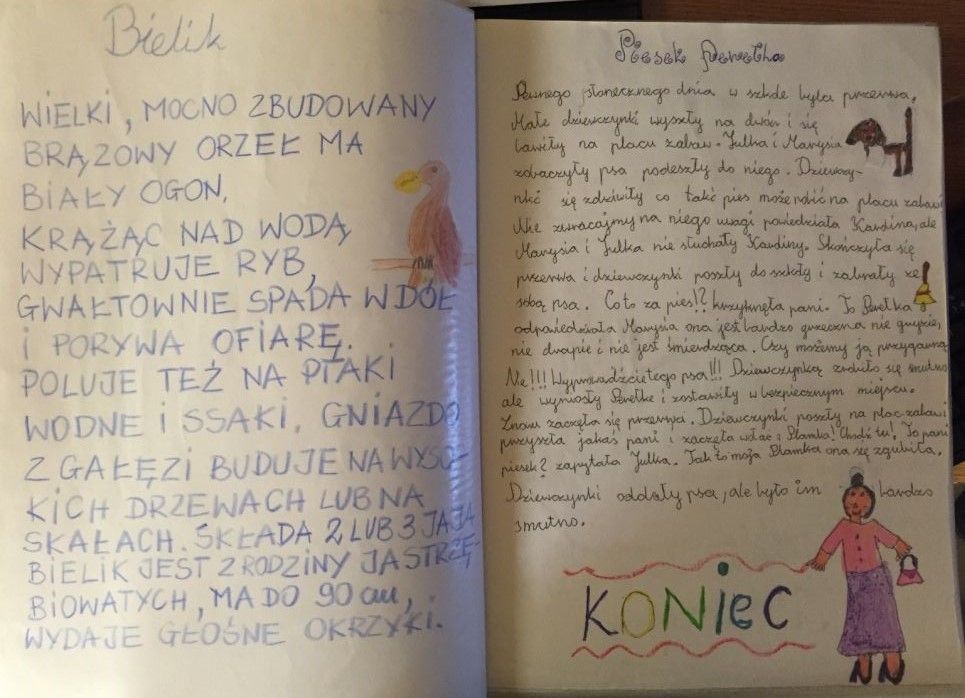 Bielik
WIELKI, MOCNO ZBUDOWANY
BRĄZOWY ORZEŁ MA
BIAŁY OGON.
KRĄŻĄC NAD WODĄ
WYPATRUJE RYB,
GWAŁTOWNIE SPADA W DÓŁ
I PORYWA OFIARĘ.
POLUJE TEŻ NA PTAKI
WODNE I SSAKI. GNIAZDO
Z GAŁĘZI BUDUJE NA WYSO-
KICH DRZEWACH LUB NA
SKAŁACH. SKŁADA 2 LUB 3 JAJA
BIELIK JEST Z RODZINY JASTRZĘ-
BIOWATYCH, MA DO 90 cm,
WYDAJE GŁOŚNE OKRZYKI.
Piesek Perełka
Pewnego słonecznego dnia w szkole była przerwa.
Małe dziewczynki wyszły na dwór i się
bawiły na placu zabaw. Julka i Marysia
zobaczyły psa podeszły do niego. Dziewczy-
nki się zdziwiły co takiś pies może robić na placu zabaw
Nie zwracajmy na niego uwagi powiedziała Karolina, ale
Marysia i Julka nie słuchały Karoliny. Skończyła się
przerwa i dziewczynki poszły do szkoły i zabrały ze
sobą psa. Co to za pies!? krzyknęła pani. To Perełka
odpowiedziała Marysia ona jest bardzo grzeczna nie gryzie,
nie drapie i nie jest śmierdząca. Czy możemy ją przygarnąć
Nie!!! Wyprowadźcie tego psa!!! Dziewczynką zrobiło się smutno
ale wyniosły Perełke i zostawiły w bezpiecznym miejscu.
Znowu zaczęła się przerwa. Dziewczynki poszły na plac zabaw i
przyszła jakaś pani i zaczęła wołać: Plamka! Chodź tu! To pani
piesek? zapytała Julka. Tak to moja Plamka ona się zgubiła.
Dziewczynki oddały psa, ale było im bardzo
smutno.
KONIEC